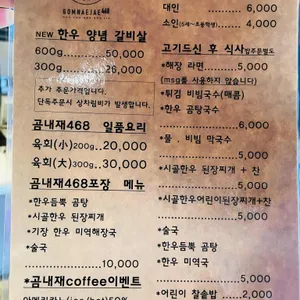 GOMNAEJAE 468
NEW 한우 양념 갈비살
600g 50,000
300g 26,000
추가 주문가격입니다.
단독주문시 상차림비가 발생합니다.
곰내재468 일품요리
육회(小)200g 20,000
육회(大)300g 30,000
곰내재468포장 메뉴
*한우듬뿍 곰탕
*시골한우 된장찌개
*기장 한우 미역해장국
*술국
10,000
*곰내재coffee이벤트
대인 6,000
소인 4,000
고기드신 후 식사
*해장 라면 5,000
(msg를 사용하지 않습니다)
*튀검 비빔국수(매콤)
*한우 곰탕국수
6,000
*물 . 비빔 막국수
5,000
*시골한우 된장찌개 + 찬
*시골한우어린이된장찌개+찬
*술국 5,000
*한우듬뿍 곰탕
*한우 미역국
5,000
*어린이 찰솥밥 2,000